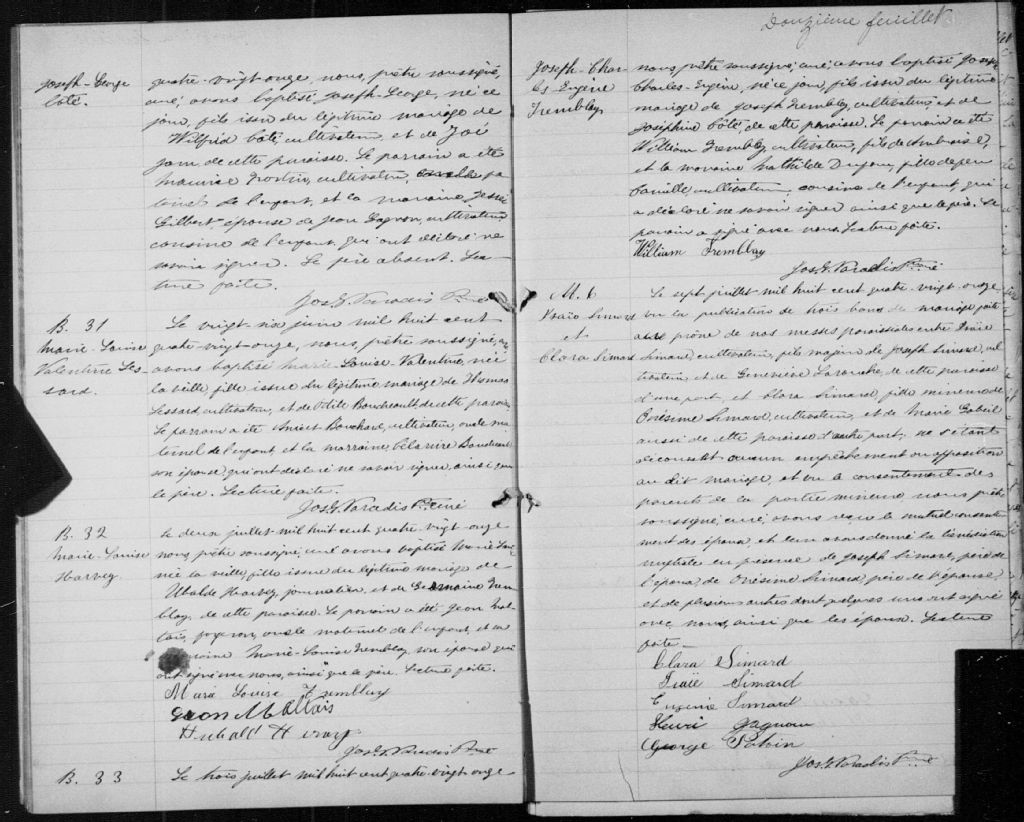 Joseph-George
Côté.
quatre-vingt-onze, nous, prêtre soussigné,
curé, avons baptisé Joseph-George, né ce
jour, fils issu du légitime mariage de
Wilfrid Côté, cultivateur, et de
de cette paroisse. Le parrain a été
Maurice Fortin, cultivateur, pa-
de l'enfant, et la marraine
Gilbert, épouse de Jean Gagnon, cultivateur
cousine de l'enfant, qui ont déclaré ne
savoir signer. Le père absent. Lec-
ture faite.
Jos. G. Paradis Ptre
B. 31
Marie-Louise
Valentine Les-
sard.
Le vingt- juin mil huit cent
quatre-vingt-onze, nous, prêtre soussigné,
avons baptisé Marie Louise Valentine, née
la veille, fille issue du légitime mariage de Thomas
Lessard, cultivateur, et de Odile Bouchard, de cette paroisse.
Le parrain a été Bouchard, cultivateur, oncle ma-
ternel de l'enfant et la marraine,
son épouse, qui ont déclaré ne savoir signer, ainsi que
le père. Lecture faite.
Jos. G. Paradis Ptre curé
B. 32
Marie-Louise
Harvey.
Le deux juillet mil huit cent quatre-vingt-onze
nous, prêtre soussigné, curé avons baptisé Marie Lou
née la veille, fille issue du légitime mariage de
Ubalde Harvey, journalier, et de Germaine Trem-
blay, de cette paroisse. Le parrain a été Jean Mal-
tais, oncle maternel de l'enfant, et la
Marie-Louise Tremblay, son épouse qui
ont signé avec nous, ainsi que le père. Lecture faite.
Marie Louise Tremblay
Maltais
Jos. G. Paradis Ptre
B. 33
Le trois juillet mil huit cent quatre-vingt-onze
Douzième feuillet
Joseph-Char-
les-Eugène
Tremblay
nous, prêtre soussigné, curé, avons baptisé Joseph
Charles-Eugène, né ce jour, fils issu du légitime
mariage de Joseph Tremblay, cultivateur, et de
Joséphine Côté, de cette paroisse. Le parrain a été
William Tremblay, cultivateur, fils de
et la marraine Mathilde Dufour, fille de feu
Camille, cultivateur, cousine de l'enfant, qui
a déclaré ne savoir signer ainsi que le père. Le
parrain a signé avec nous. Lecture faite.
William Tremblay
Jos. G. Paradis Ptre
M. 6
Simard
et
Clara Simard
Le sept juillet mil huit cent quatre-vingt-onze
vu la publication de trois bans de mariage faite
au prône de nos messes paroissiales entre
Simard, cultivateur, fils majeur de Joseph Simard, cul-
tivateur, et de Geneviève Larouche, de cette paroisse
d'une part, et Clara Simard, fille mineure de
Onésime Simard, cultivateur, et de Marie Gobeil
aussi de cette paroisse d'autre part, ne s'étant
découvert aucun empêchement ou opposition
au dit mariage, et vu le consentement des
parents de la partie mineure nous prêtre
soussigné, curé, avons reçu le mutuel consente-
ment des époux, et leur avons donné la bénédiction
nuptiale en présence de Joseph Simard, père de
l'époux, de Onésime Simard, père de l'épouse,
et de plusieurs autres dont quelques uns ont signé
avec nous, ainsi que les époux. Lecture
faite.
Clara Simard
Simard
Eugénie Simard
Henri Gagnon
George
Jos. G. Paradis Ptre